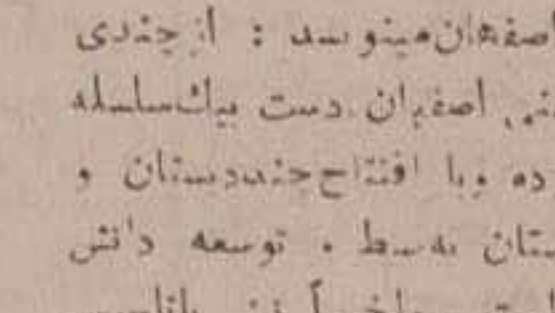 اصفهان مینویسد : از چندی
اصفهان دست بیك‌سلسله
ده و با افتتاح چند دبستان و
ستان به بسط و توسعه دانش